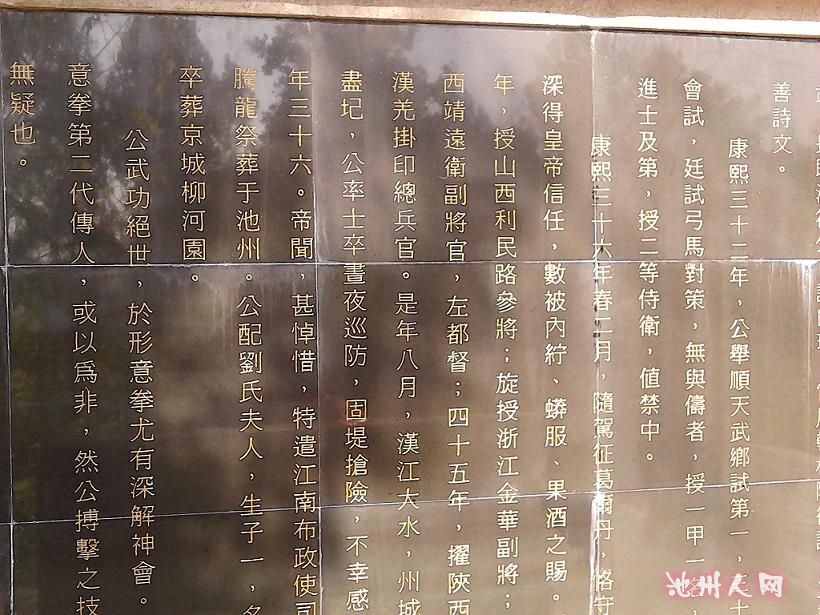 善詩文。
康熙三十二年，公舉順天武鄉試第一，
會試，廷試弓馬對策，無與儔者，授一甲一名，
進士及第，授二等侍衛，值禁中。
康熙三十六年春二月，隨駕征葛爾丹，恪守
深得皇帝信任，數被內紵、蟒服、果酒之賜。
年，授山西利民路參將；旋授浙江金華副將；
西靖遠衛副將官，左都督；四十五年，擢陝西
漢羌掛印總兵官。是年八月，漢江大水，州城
盡圮，公率士卒晝夜巡防，固堤搶險，不幸感
年三十六。帝聞，甚悼惜，特遣江南布政使司
騰龍祭葬于池州。公配劉氏夫人，生子一，名
卒葬京城柳河園。
公武功絕世，於形意拳尤有深解神會。
意拳第二代傳人，或以爲非，然公搏擊之技
無疑也。
池州人网